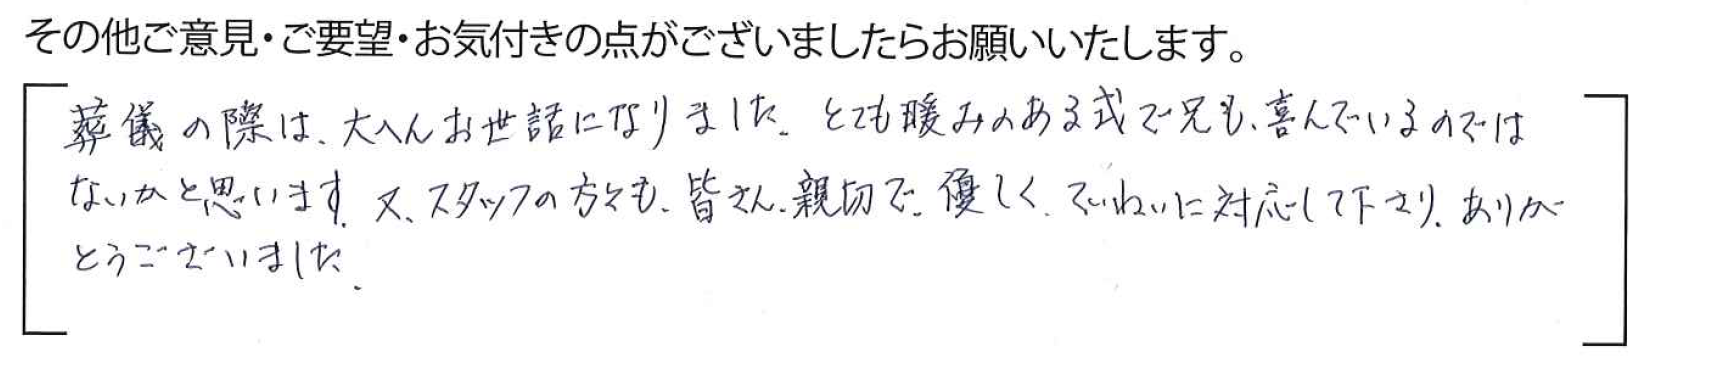 その他ご意見・ご要望・お気付きの点がございましたらお願いいたします。
葬儀の際は、大へんお世話になりました。とても暖みのある式で兄も、喜んでいるのでは
ないかと思います。又、スタッフの方々も、皆さん、親切で、優しく、ていねいに対応して下さり、ありが
とうございました。